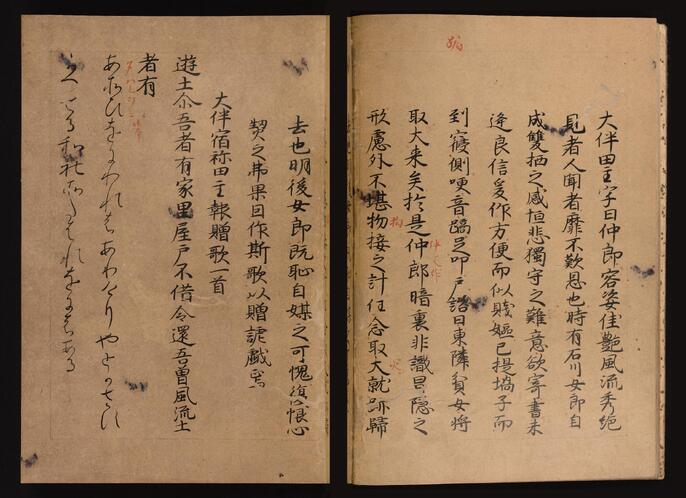 大伴田主字曰仲郎容姿佳艶風流秀絶
見者人聞者靡不歎息也時有石川女郎自
成雙栖之感恒悲獨守之難意欲寄書未
逢良信爰作方便而似賤嫗己提堝子而
到寢側哽音蹢足叩戸諮曰東隣貧女將
取大来矣於是仲郎暗裏非識冒隱之
形慮外不堪物接之計任念取大就跡歸
拘
火
去也明後女郎既恥自媒之可愧復恨心
契之弗果因作斯歌以贈謔戯焉
大伴宿祢田主報贈歌一首
遊士尓吾者有家里屋戸不借令還吾曽風流士
者有
あそひをにわれはありけりやとかさす
かへせる和礼そたはれをにはある